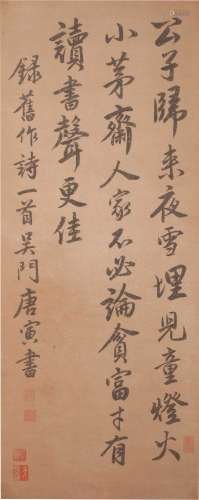 公子歸來夜雪埋兒童燈火
小茅齋人家不必論貪富才有
讀書聲更佳
録舊作詩一首吳門唐寅書